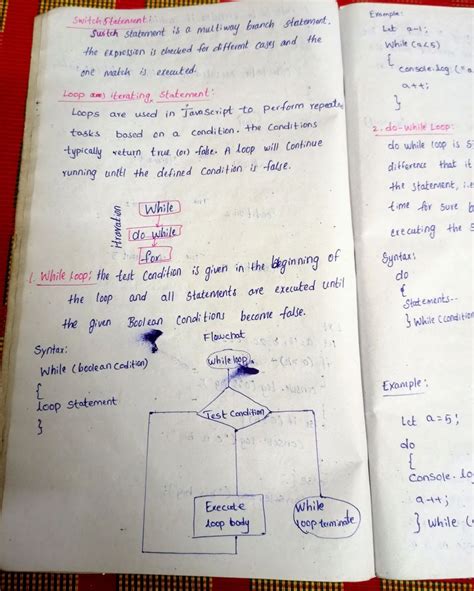 Switch Statement:
Switch statement is a multiway branch statement.
the expression is checked for different cases and the
one match is executed.
Loop iterating Statement:
Loops are used in JavaScript to perform repeated
tasks based on a condition. the Conditions
typically return true (or) false. A loop will Continue
running until the defined Condition is false.
While
do while
for
1. While Loop: the test Condition is given in the beginning of
the loop and all statements are executed until
the given Boolean Conditions become false.
Flowchat
Syntax:
While (boolean Codition)
{
loop statement
}
while loop
Test Condition
Execute
loop body
While
loop terminate
Example:
Let a=1;
While (a<5)
{
console.log ("a
a++;
}
2. do-while Loop:
do while loop is
difference that it
the statement, i.e
time for sure
executing the
Syntax:
do
{
Statements..
} While (condition
Example:
let a=5;
do
{
Console.lo
a++;
} While (